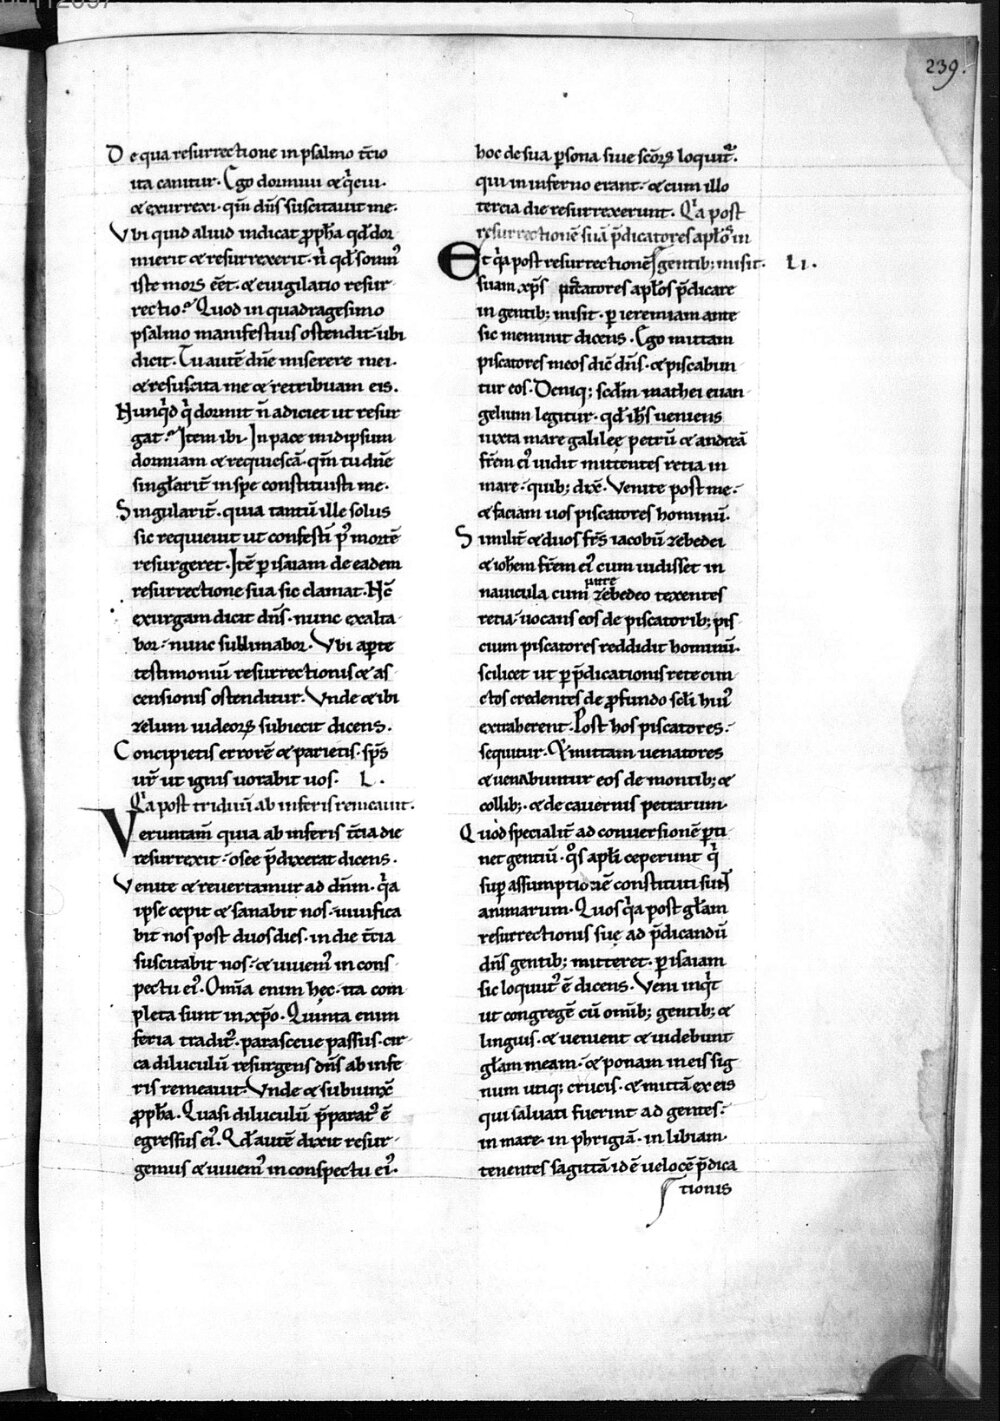 239.
De qua resurrectione in psalmo t̄cio
ita canitur. Ego dormiui & q̇eui.
& exurrexi. qm̄ dn̄s suscitauit me.
Vbi quid aliud indicat ꝓph̄a qd̄ dor
mierit & resurrexerit. n̄ qd̄ somn᷒
iste mors eēt. & euigilatio resur
rectio? Quod in quadragesimo
psalmo manifestius ostendit. ubi
dicit. Tu autē dn̄e miserere mei.
& resuscita me & retribuam eis.
Nunq̇d q̇ dormit n̄ adiciet ut resur
gat? Item ibi. In pace in idipsum
dormiam & requiescā. qm̄ tu dn̄e
singlarit̄ in spe constituisti me.
Singularit̄. quia tantū ille solus
sic requieuit ut confestī p᷒ mortē
resurgeret. Itē ꝑ isaiam de eadem
resurrectione sua sic clamat. Nc̄
exurgam dicit dn̄s. nunc exalta
bor. nunc sublimabor. Vbi aꝑte
testimoniū resurrectionis & as
censionis ostenditur. Vnde & ibi
zelum iudeoꝝ subiecit dicens.
Concipietis errorē & parietis. sp̄s
ur̄ ut ignis uorabit uos. L.
Qa post triduū ab inferis remeauit.
Veruntam̄ quia ab inferis t̄cia die
resurrexit. osee p̄dixerat dicens.
Venite & reuertamur ad dn̄m. q̇a
ipse cepit & sanabit nos. uiuifica
bit nos post duos dies. in die t̄cia
suscitabit nos. & uiuem᷒ in cons
pectu ei᷒. Om̄ia enim hec. ita com
pleta sunt in xp̄o. Quinta enim
feria tradit᷒. parasceue passus. cir
ca diluculū resurgens dn̄s ab infe
ris remeauit. Vnde & subiunx̄
ꝓph̄a. Quasi diluculū p̄parat᷒ ē
egressus ei᷒. Qd̄ autē dixit resur
gemus & uiuem᷒ in conspectu ei᷒.
hoc de sua ꝑsona siue sc̄oꝝ loquit᷒.
qui in inferno erant. & cum illo
tercia die resurrexerunt. Qa post
resurrectionē suā p̄dicatores apl̄os in
Et q̇a post resurrectionē gentib; misit. LI.
suam xp̄s apl̄os p̄dicare
in gentib; misit. ꝑ ieremiam ante
sic meminit dicens. Ego mittam
piscatores meos dic̄ dn̄s. & piscabun
tur eos. Deniq; scd̄m mathei euan
gelium legitur. qd̄ ih̄s ueniens
iuxta mare galileę petrū & andreā
fr̄em ei᷒ uidit mittentes retia in
mare. quib; dix̄. Venite post me.
& faciam uos piscatores hominū.
Similit̄ & duos fr̄s iacobū zebedei
& ioh̄em fr̄em ei᷒ cum uidisset in
nauicula cum patre zebedeo texentes
retia. uocans eos de piscatorib; pis
cium piscatores reddidit hominū.
scilicet ut ꝑ p̄dicationis rete cun
ctos credentes de ꝓfundo scl̄i hui᷒
extraherent. Post hos piscatores.
sequitur. Et mittam uenatores
& uenabuntur eos de montib; &
collib;. & de cauernis petrarum.
Quod specialit̄ ad conuersionē ꝑti
net gentiū. q̇s apl̄i ceperunt q̇
sup assumptiōzē constituti sunt
animarum. Quos q̇a post gl̄am
resurrectionis suę ad p̄dicandū
dn̄s gentib; mitteret. ꝑ isaiam
sic loquut᷒ ē dicens. Veni inq̇t
ut congregē cū om̄ib; gentib; &
linguis. & uenient & uidebunt
gl̄am meam. & ponam in eis sig
num utiq; crucis. & mittā ex eis
qui saluati fuerint ad gentes.
in mare. in phrigiā. in libiam.
tenentes sagittā id ē uelocē p̄dica
tionis